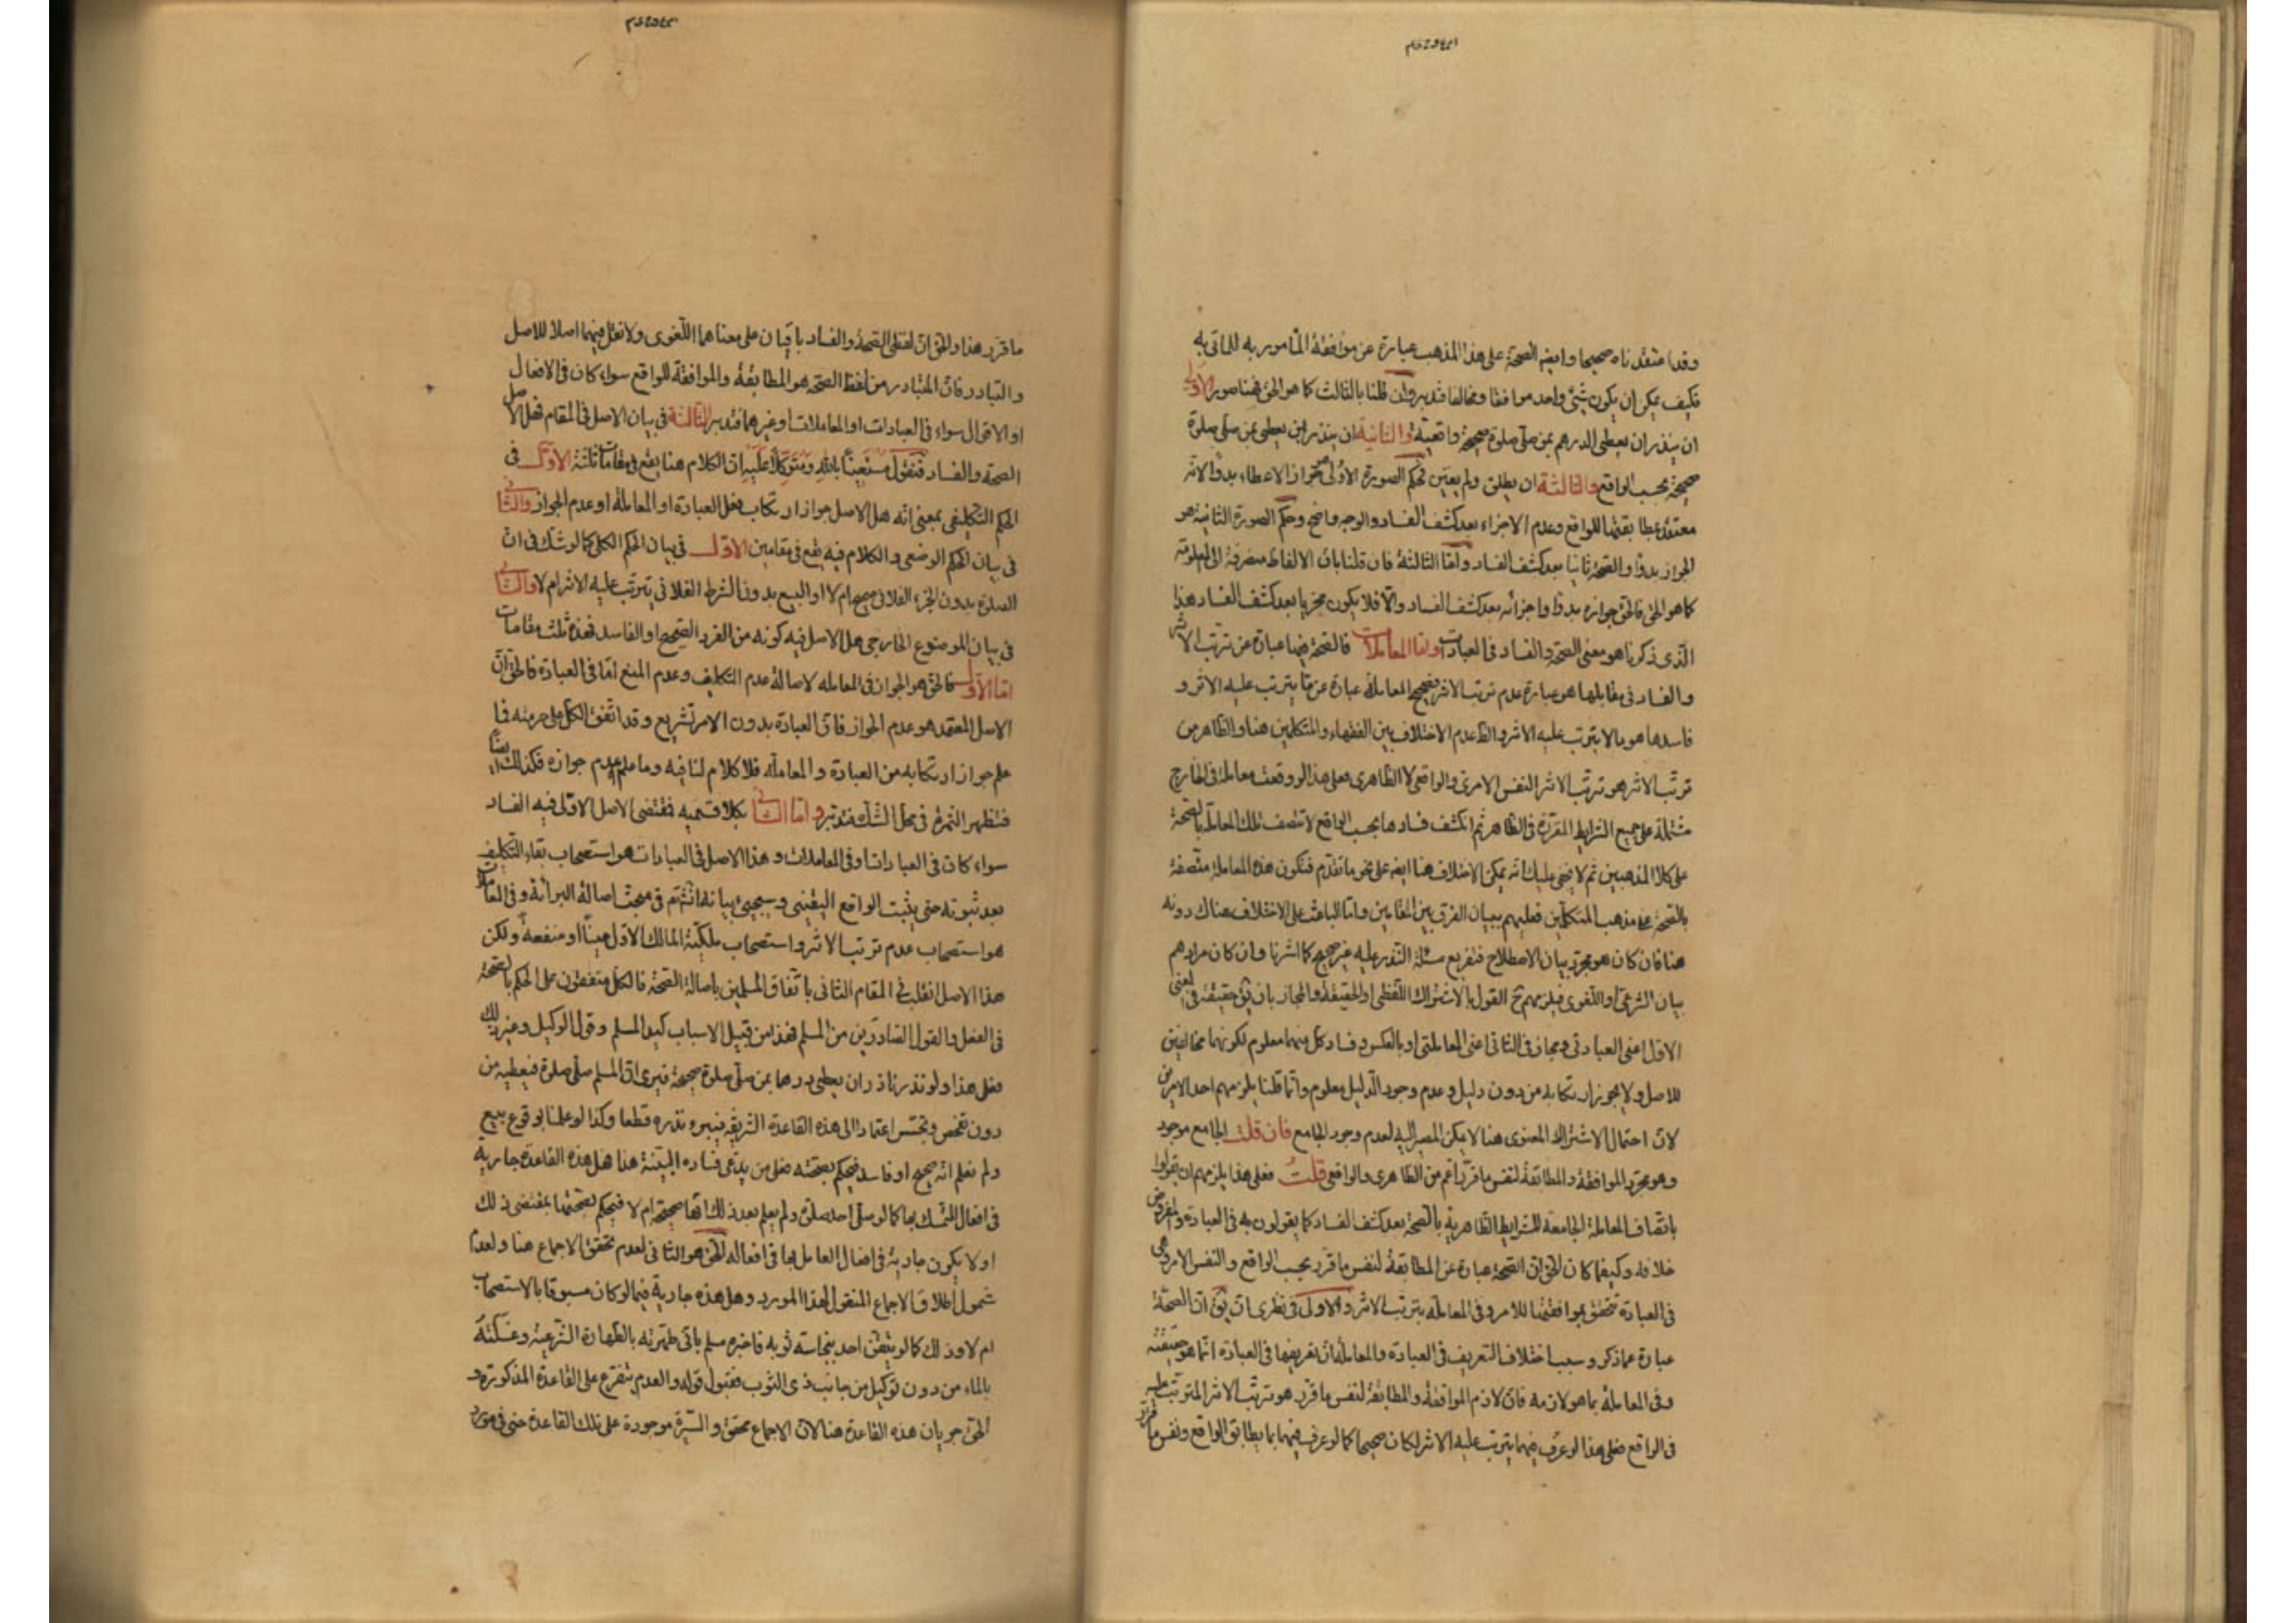 وقد اعتقدناه صحيحا وايضا الصحة على هذا المذهب عبارة عن موافقة المامور به للماتى به
فكيف يمكن ان يكون شئ واحد موافقا ومخالفا فتدبر وان قلنا بالثالث كما هو الحق فهنا صور الاولى
ان ينذر ان يعطى الدرهم بمن صلى صلوة صحيحة واقعية والثانية ان ينذر ان يعطى بمن صلى صلوة
صحيحة بحسب الواقع والثالثة ان يطلق ولم يعين فحكم الصورة الاولى هو جواز الاعطاء بدوا لاثر
معتقد مطابقتها للواقع وعدم الاجزاء بعد كشف الفساد والوجه واضح وحكم الصورة الثانية هو
الجواز بدوا والصحة ثانيا بعد كشف الفساد واما الثالثة فان قلنا بان الالفاظ منصرفة الى المعلومة
كما هو الحق فالحق جوازه بدوا واجزائه بعد كشف الفساد والا فلا يكون مجزيا بعد كشف الفساد هذا
الذى ذكرناه هو معنى الصحة والفساد فى العبادات واما المعاملات فالصحة فيها عبارة عن ترتب الاثر
والفساد فى مقابلها هو عبارة عدم ترتب الاثر فصحيح المعاملة عبارة عن ما يترتب عليه الاثر و
فاسدها هو ما لا يترتب عليه الاثر والظ عدم الاختلاف بين الفقهاء والمتكلمين هنا والظاهر من
ترتب الاثر هو ترتب الاثر النفس الامرى والواقعى لا الظاهرى فعلى هذا لو وقعت معاملة فى الخارج
مشتملة على جميع الشرايط المقررة فى الظاهر ثم انكشف فسادها بحسب الواقع لا تتصف تلك المعاملة بالصحة
على كلا المذهبين ثم لا يخفى عليك انه يمكن الاختلاف هنا ايضا على نحو ما تقدم فتكون هذه المعاملة متصفة
بالصحة على مذهب المتكلمين فعليهم ببيان الفرق بين المقامين واما الباعث على الاختلاف هناك دونه
هنا فان كان هو مجرد بيان الاصطلاح فتفريع مسئلة النذر عليه غير صحيح كما اشرنا وان كان مرادهم
بيان الشرعى او اللغوى فيلزمهم ح القول بالاشتراك اللفظى او الحقيقة والمجاز بان يق حقيقة فى المعنى
الاول اعنى العبادتى ومجاز فى الثانى اعنى المعاملتى او بالعكس وفساد كل منهما معلوم لكونهما مخالفين
للاصل ولا يجوز ارتكابه من دون دليل وعدم وجود الدليل معلوم وانما قلنا يلزمهم احد الامرين
لان احتمال الاشتراك المعنوى هنا لا يمكن المصير اليه لعدم وجود الجامع فان قلت الجامع موجود
وهو مجرد الموافقة والمطابقة لنفس ما قرر اعم من الظاهرى والواقعى قلت فعلى هذا يلزمهم ان يقولوا
باتصاف المعاملة الجامعة للشرايط الظاهرية بالصحة بعد كشف الفساد كما يقولون به فى العبادة والمفروض
خلافه وكيفما كان الحق ان الصحة عبارة عن المطابقة لنفس ما قرر بحسب الواقع والنفس الامر وهى
فى العبادة تتحقق بموافقتها للامر وفى المعاملة بترتب الاثر والاولى فى نظرى ان يق ان الصحة
عبارة عما ذكر وسبب اختلاف التعريف فى العبادة والمعاملة ان تعريفها فى العبادة انما هو حقيقته
وفى المعاملة بما هو لازمه فان لازم الموافقة والمطابقة لنفس ما قرر هو ترتب الاثر المترتب عليه
فى الواقع فعلى هذا لو عرف فيهما يترتب عليه الاثر لكان صحيحا كما لو عرف فيهما بما يطابق الواقع ونفس ما قرر
ما قرر هذا والحق ان لفظى الصحة والفساد باقيان على معناهما اللغوى ولا نقل فيهما اصلا للاصل
والتبادر فان المتبادر من لفظ الصحة هو المطابقة والموافقة للواقع سواء كان فى الافعال
او الاقوال سواء فى العبادات او المعاملات او غيرهما فتدبر الثالثة فى بيان الاصل فى المقام فهل الاصل
الصحة والفساد فنقول مستعينا بالله ومتوكلا عليه ان الكلام هنا يقع فى مقامات ثلثة الاول فى
الحكم التكليفى بمعنى انه هل الاصل جواز ارتكاب فعل العبادة او المعاملة او عدم الجواز والثانى
فى بيان الحكم الوضعى والكلام فيه يقع فى مقامين الاول فى بيان الحكم الكلى كما لو شك فى ان
الصلوة بدون الجزء الفلانى صحيح ام لا او البيع بدون الشرط الفلانى يترتب عليه الاثر ام لا والثانى
فى بيان الموضوع الخارجى هل الاصل فيه كونه من الفرد الصحيح او الفاسد فهذه ثلث مقامات
اما الاول فالحق هو الجواز فى المعاملة لاصالة عدم التكليف وعدم المنع اما فى العبادة فالحق ان
الاصل المعتمد هو عدم الجواز فان العبادة بدون الامر تشريع وقد اتفق الكل على حرمته فما
علم جواز ارتكابه من العبادة والمعاملة فلا كلام لنا فيه وما علم عدم جوازه فكذلك ايضا
فتظهر الثمرة فى محل الشك فتدبر واما الثانى بكلا قسميه فمقتضى الاصل الاولى فيه الفساد
سواء كان فى العبادات او فى المعاملات وهذا الاصل فى العبادات هو استصحاب بقاء التكليف
بعد ثبوته حتى يثبت الواقع اليقينى وسيجئ بيانه انشتم فى مبحث اصالة البرائة وفى المعاملات
هو استصحاب عدم ترتب الاثر واستصحاب ملكية المالك الاول عينا او منفعة ولكن
هذا الاصل انقلب فى المقام الثانى باتفاق المسلمين باصالة الصحة فالكل متفقون على الحكم بالصحة
فى الفعل والقول الصادرين من المسلم فهذا من قبيل الاسباب كيد المسلم وقول الوكيل وغير ذلك
فعلى هذا لو نذر ناذر ان يعطى درهما بمن صلى صلوة صحيحة فيرى ان المسلم صلى صلوة فيعطيه من
دون تفحص وتجسس اعتمادا الى هذه القاعدة الشريفة فيبرء نذره قطعا وكذا لو علمنا بوقوع بيع
ولم نعلم انه صحيح او فاسد فيحكم بصحته فعلى من يدعى فساده البينة هذا هل هذه القاعدة جارية
فى افعال المتمسك بها كما لو صلى احد صلوة ولم يعلم بعد ذلك انها صحيحة ام لا فيحكم بصحتها بمقتضى ذلك
او لا يكون جارية فى افعال العامل بها فى افعاله الحق هو الثانى لعدم تحقق الاجماع هنا ولعدم
شمول اطلاق الاجماع المنقول لهذا المورد وهل هذه جارية فيما لو كان مسبوقا بالاستصحاب
ام لا وذلك كما لو تيقن احد بنجاسة ثوبه فاخبره مسلم بانى طهرته بالطهارة الشرعية وغسلته
بالماء من دون توكيل من جانب ذى الثوب فقبول قوله والعدم يتفرع على القاعدة المذكورة و
الحق جريان هذه القاعدة هنا لان الاجماع محقق والسيرة موجودة على تلك القاعدة حتى فى مورد